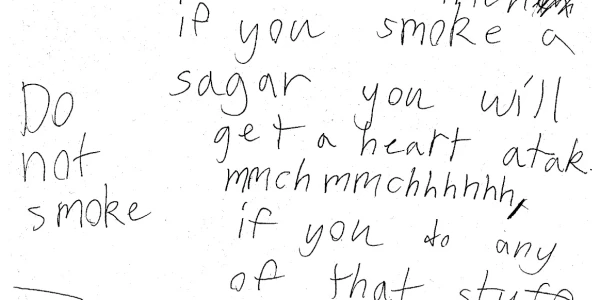 if you smoke a
sagar you will
get a heart atak
mmch mmchhhhhh,
if you do any
of that stuff
Do
not
smoke